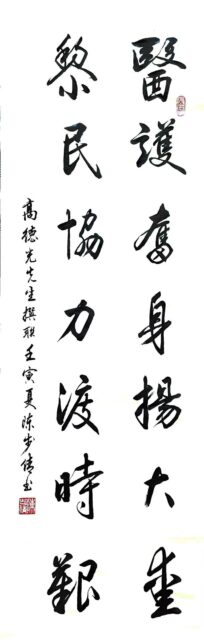 醫護奮身揚大愛
黎民協力渡時艱
高德光先生撰联壬寅夏陈步倩书